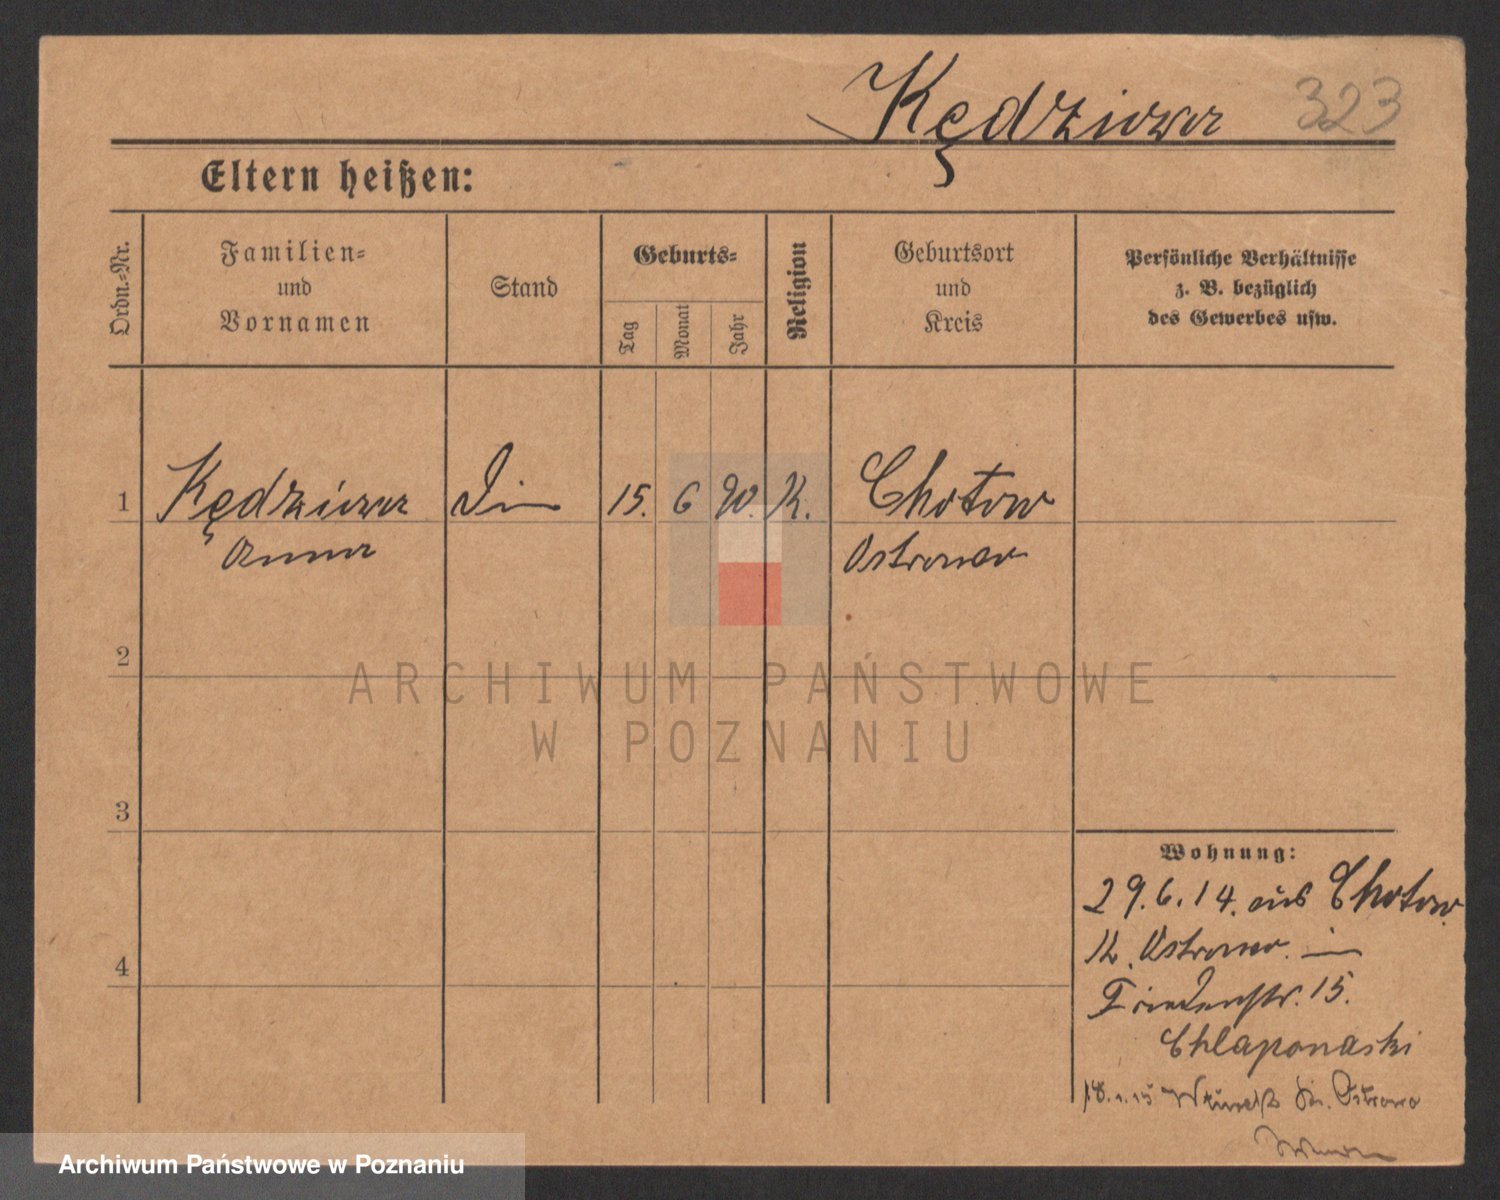 Kędziora 323
Eltern heißen:
Ordn.-Nr.
Familien-
und
Vornamen
Stand
Geburts-
Tag
Monat
Jahr
Religion
Geburtsort
und
Kreis
Persönliche Verhältnisse
z. B. bezüglich
des Gewerbes usw.
1 Kędziora 15. 6 90. K. Chotow
Anna Ostrowo
2
3
4
Wohnung:
29.6.14. aus Chotow
K. Ostrowo.
Friedenstr. 15.
Chlaponaski
18.1.15 Kr. Ostrowo
ARCHIWUM PAŃSTWOWE
W POZNANIU
Archiwum Państwowe w Poznaniu